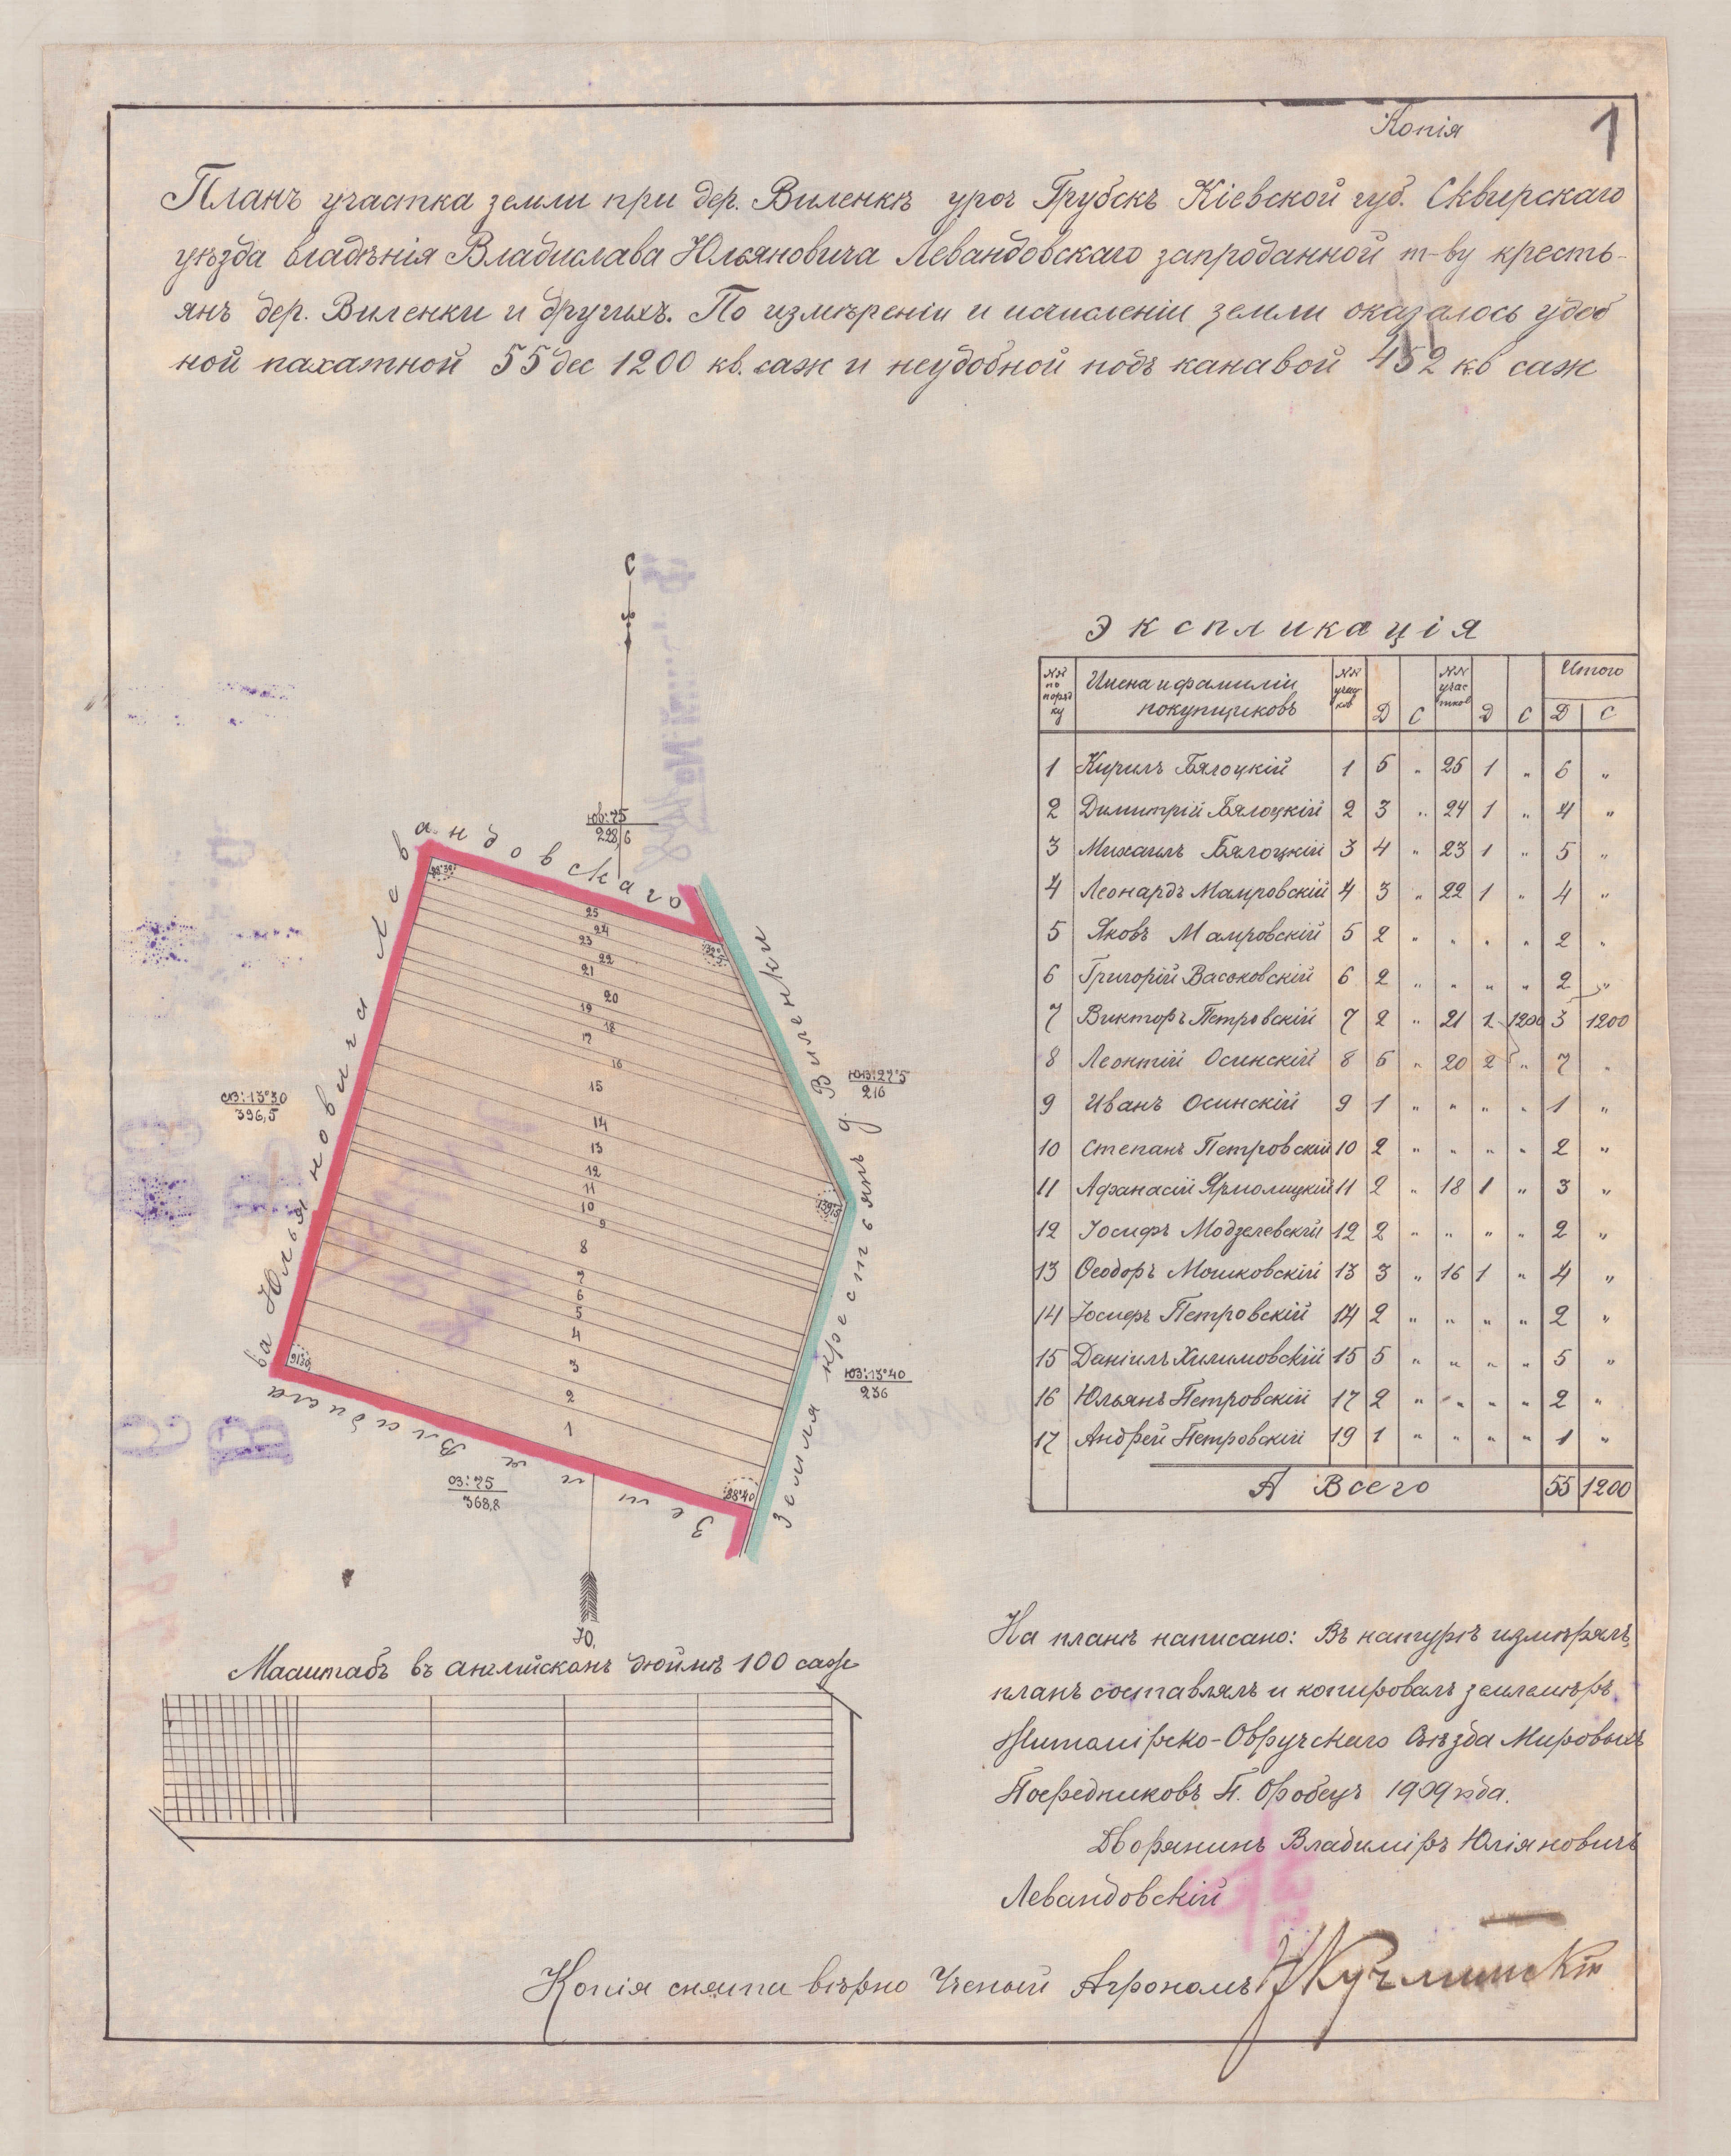 Копія
1
Планъ участка земли при дер. Виленкѣ уроч Грубскъ Кіевской губ. Сквирскаго
уѣзда владѣнія Владислава Юльяновича Левандовскаго запроданной т-ву кресть-
янъ дер. Виленки и другихъ. По измѣреніи и исчисленіи земли оказалось удоб
ной пахатной 55 дес 1200 кв. саж и неудобной подъ канавой 452 кв саж
С
ЮВ:75
228,6
Левандовскаго
98°30
25
24
23
22
21
20
19
18
17
16
15
14
13
12
11
10
9
8
7
6
5
4
3
2
1
ЮЗ:27°5
216
СВ:13°30
396,5
ва Юльяновича
91°30
ЮЗ:13°40
236
Земля крестьянъ д. Виленки
88°40
СЗ:75
368,8
Земля Владисла
Ю.
Масштабъ въ англійскомъ дюймѣ 100 саж
Экспликація
№№ по поряд ку Имена и фамиліи покупщиковъ №№ учас ков Д С №№ учас тков Д С Итого Д С
1 Кирилъ Бялоцкій 1 5 „ 25 1 „ 6 „
2 Димитрій Бялоцкій 2 3 „ 24 1 „ 4 „
3 Михаилъ Бялоцкій 3 4 „ 23 1 „ 5 „
4 Леонардъ Мамровскій 4 3 „ 22 1 „ 4 „
5 Яковъ Мамровскій 5 2 „ „ „ „ 2 „
6 Григорій Васоковскій 6 2 „ „ „ „ 2 „
7 Викторъ Петровскій 7 2 „ 21 1 1200 3 1200
8 Леонтій Осинскій 8 5 „ 20 2 „ 7 „
9 Иванъ Осинскій 9 1 „ „ „ „ 1 „
10 Степанъ Петровскій 10 2 „ „ „ „ 2 „
11 Афанасій Ярмолицкій 11 2 „ 18 1 „ 3 „
12 Іосифъ Модзелевскій 12 2 „ „ „ „ 2 „
13 Ѳеодоръ Мошковскій 13 3 „ 16 1 „ 4 „
14 Іосифъ Петровскій 14 2 „ „ „ „ 2 „
15 Даніилъ Хилимовскій 15 5 „ „ „ „ 5 „
16 Юльянъ Петровскій 17 2 „ „ „ „ 2 „
17 Андрей Петровскій 19 1 „ „ „ „ 1 „
А Всего 55 1200
На планѣ написано: Въ натурѣ измѣрялъ,
планъ составлялъ и копировалъ землемѣръ
Житомірско-Овручскаго Съѣзда Мировыхъ
Посредниковъ П. 1909 года.
Дворянинъ Владиміръ Юліяновичъ
Левандовскій
Копія снята вѣрно Ученый Агрономъ